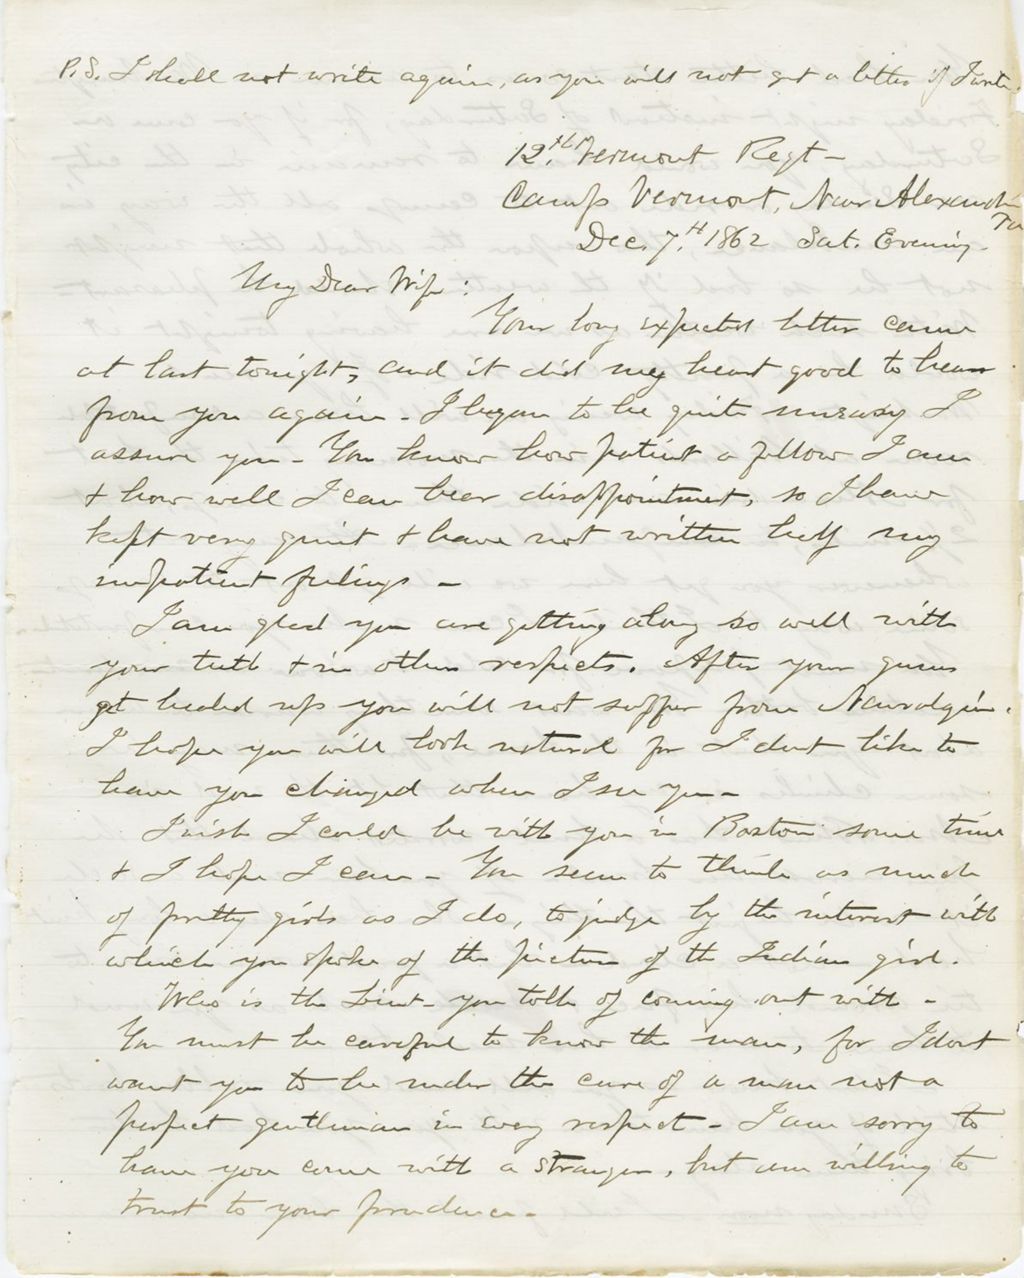 P.S. I shall not write again, as you will not get a letter if I write.
12th Vermont Regt-
Camp Vermont, Near Alexandria
Va
Dec. 7th 1862 Sat. Evening-
My Dear Wife:
Your long expected letter came
at last tonight, and it did my heart good to hear
from you again - I began to be quite uneasy I
assure you - You know how patient a fellow I am
& how well I can bear disappointment, so I have
kept very quiet & have not written half my
impatient feelings -
I am glad you are getting along so well with
your teeth & in other respects. After your gums
get healed up you will not suffer from Neuralgia.
I hope you will look natural for I dont like to
have you changed when I see you -
I wish I could be with you in Boston some time
& I hope I can - You seem to think as much
of pretty girls as I do, to judge by the interest with
which you spoke of the picture of the Indian girl.
Who is the Lieut- you talk of coming out with -
You must be careful to know the man, for I dont
want you to be under the care of a man not a
perfect gentleman in every respect - I am sorry to
have you come with a stranger, but am willing to
trust to your prudence -